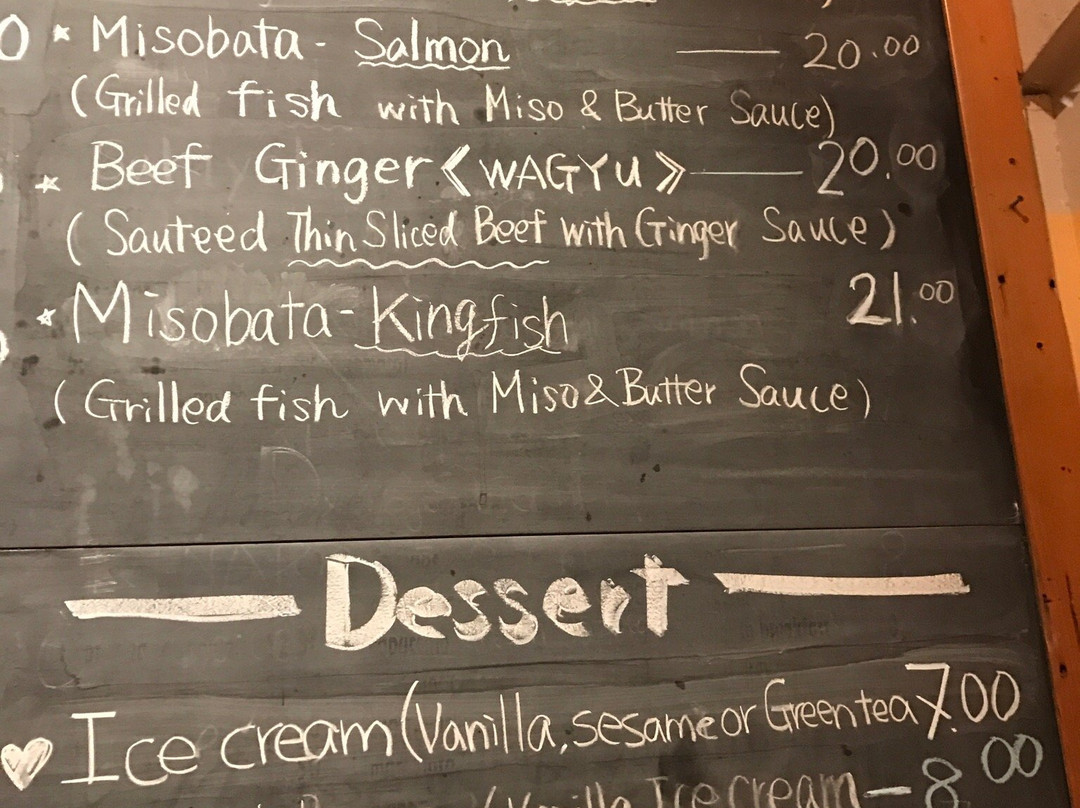 0 * Misobata - Salmon — 20.00
(Grilled fish with Miso & Butter Sauce)
* Beef Ginger 《WAGYU》 — 20.00
(Sauteed Thin Sliced Beef with Ginger Sauce)
* Misobata - Kingfish 21.00
(Grilled fish with Miso & Butter Sauce)
— Dessert —
♡ Ice cream (Vanilla, sesame or Green tea) 7.00
(Vanilla Ice cream — 8.00